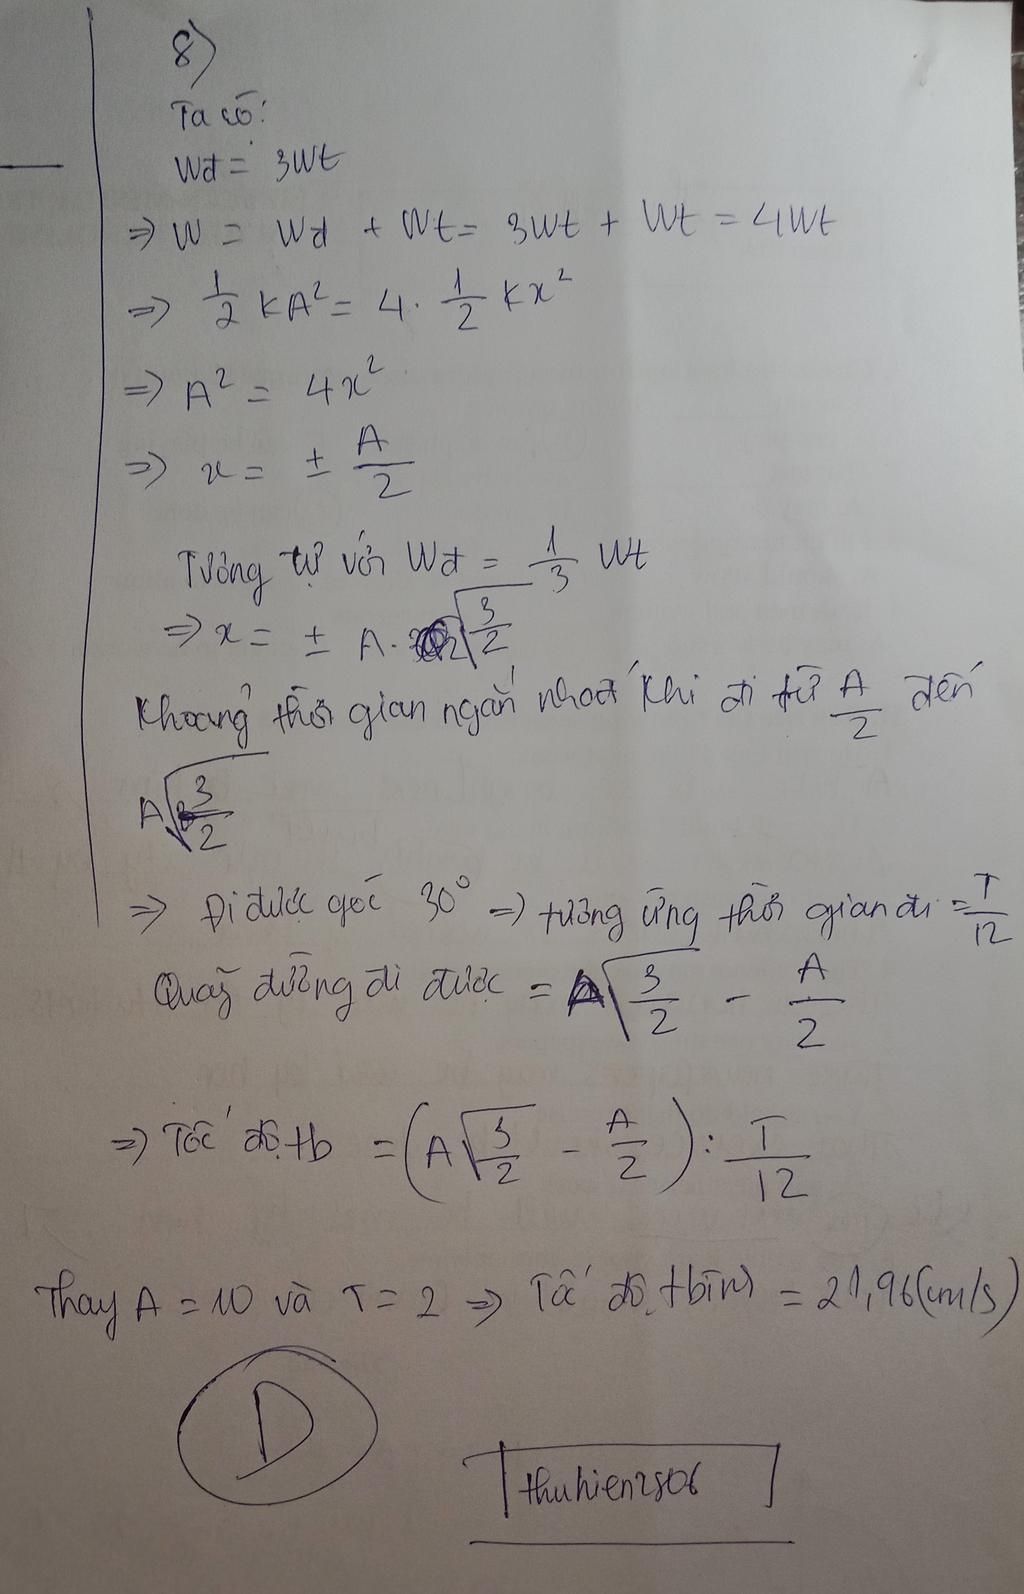 8)
Ta có:
Wđ = 3Wt
=> W = Wđ + Wt = 3Wt + Wt = 4Wt
=> 1/2 KA² = 4. 1/2 Kx²
=> A² = 4x²
=> x = ± A/2
Tương tự với Wđ = 1/3 Wt
=> x = ± A. √(3/2)
Khoảng thời gian ngắn nhất khi đi từ A/2 đến
A√(3/2)
=> Đi được góc 30° => tương ứng thời gian đi = T/12
Quãng đường đi được = A√(3/2) - A/2
=> Tốc độ tb = (A√(3/2) - A/2) : T/12
Thay A = 10 và T = 2 => Tốc độ tbình = 21,96(cm/s)
D
thuhien2806